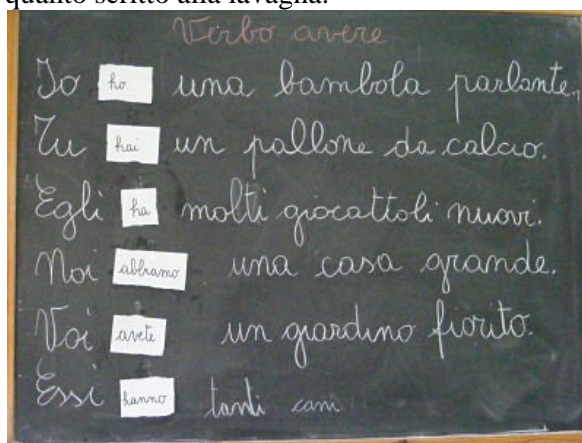 quanto scritto alla lavagna.
Verbo avere
Io ho una bambola parlante.
Tu hai un pallone da calcio.
Egli ha molti giocattoli nuovi.
Noi abbiamo una casa grande.
Voi avete un giardino fiorito.
Essi hanno tanti cani